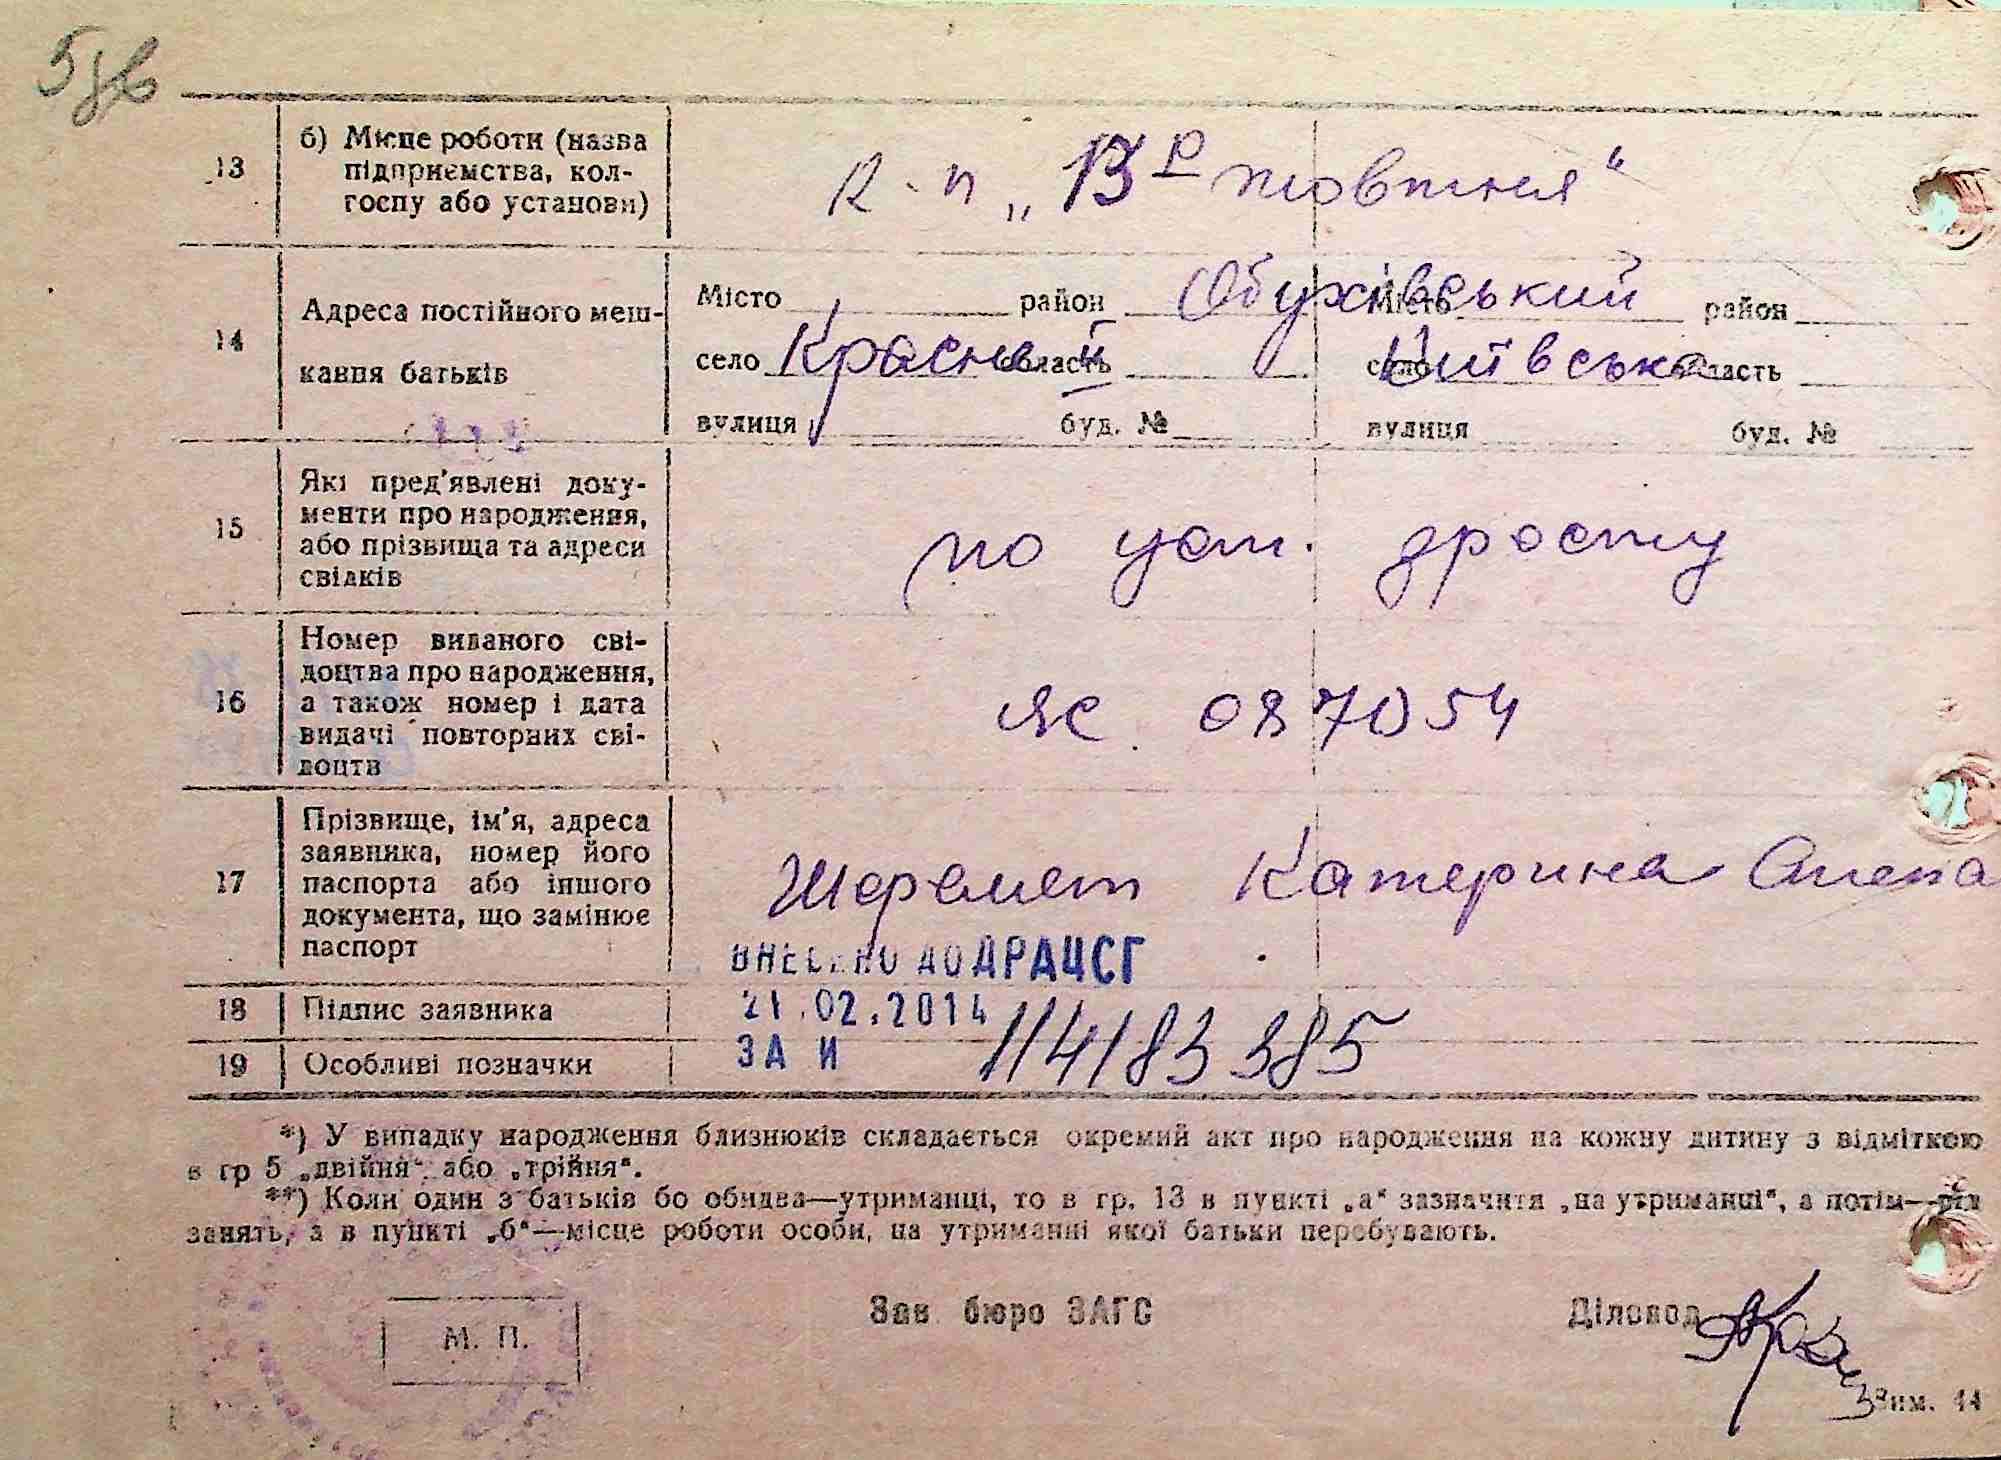 13
б) Місце роботи (назва
підприємства, кол-
госпу або установи)
к-п „13 р жовтня“
14
Адреса постійного меш-
кання батьків
Місто район Обухівський
село Красний область
вулиця буд. №
Місто район
село Київська область
вулиця буд. №
15
Які пред'явлені доку-
менти про народження,
або прізвища та адреси
свідків
по уст. зросту
16
Номер виданого сві-
доцтва про народження,
а також номер і дата
видачі повторних сві-
доцтв
ЯС 087054
17
Прізвище, ім'я, адреса
заявника, номер його
паспорта або іншого
документа, що замінює
паспорт
Шеремет Катерина
ВНЕСЕНО ДО ДРАЦСГ
18
Підпис заявника
21.02.2014
19
Особливі позначки
ЗА И 114183385
*) У випадку народження близнюків складається окремий акт про народження на кожну дитину з відміткою
в гр 5 „двійня“ або „трійня“.
**) Коли один з батьків бо обидва—утриманці, то в гр. 13 в пункті „а“ зазначити „на утриманні“, а потім—рід
занять, а в пункті „б“—місце роботи особи, на утриманні якої батьки перебувають.
М. П.
Зав. бюро ЗАГС
Діловод
Зим. 44